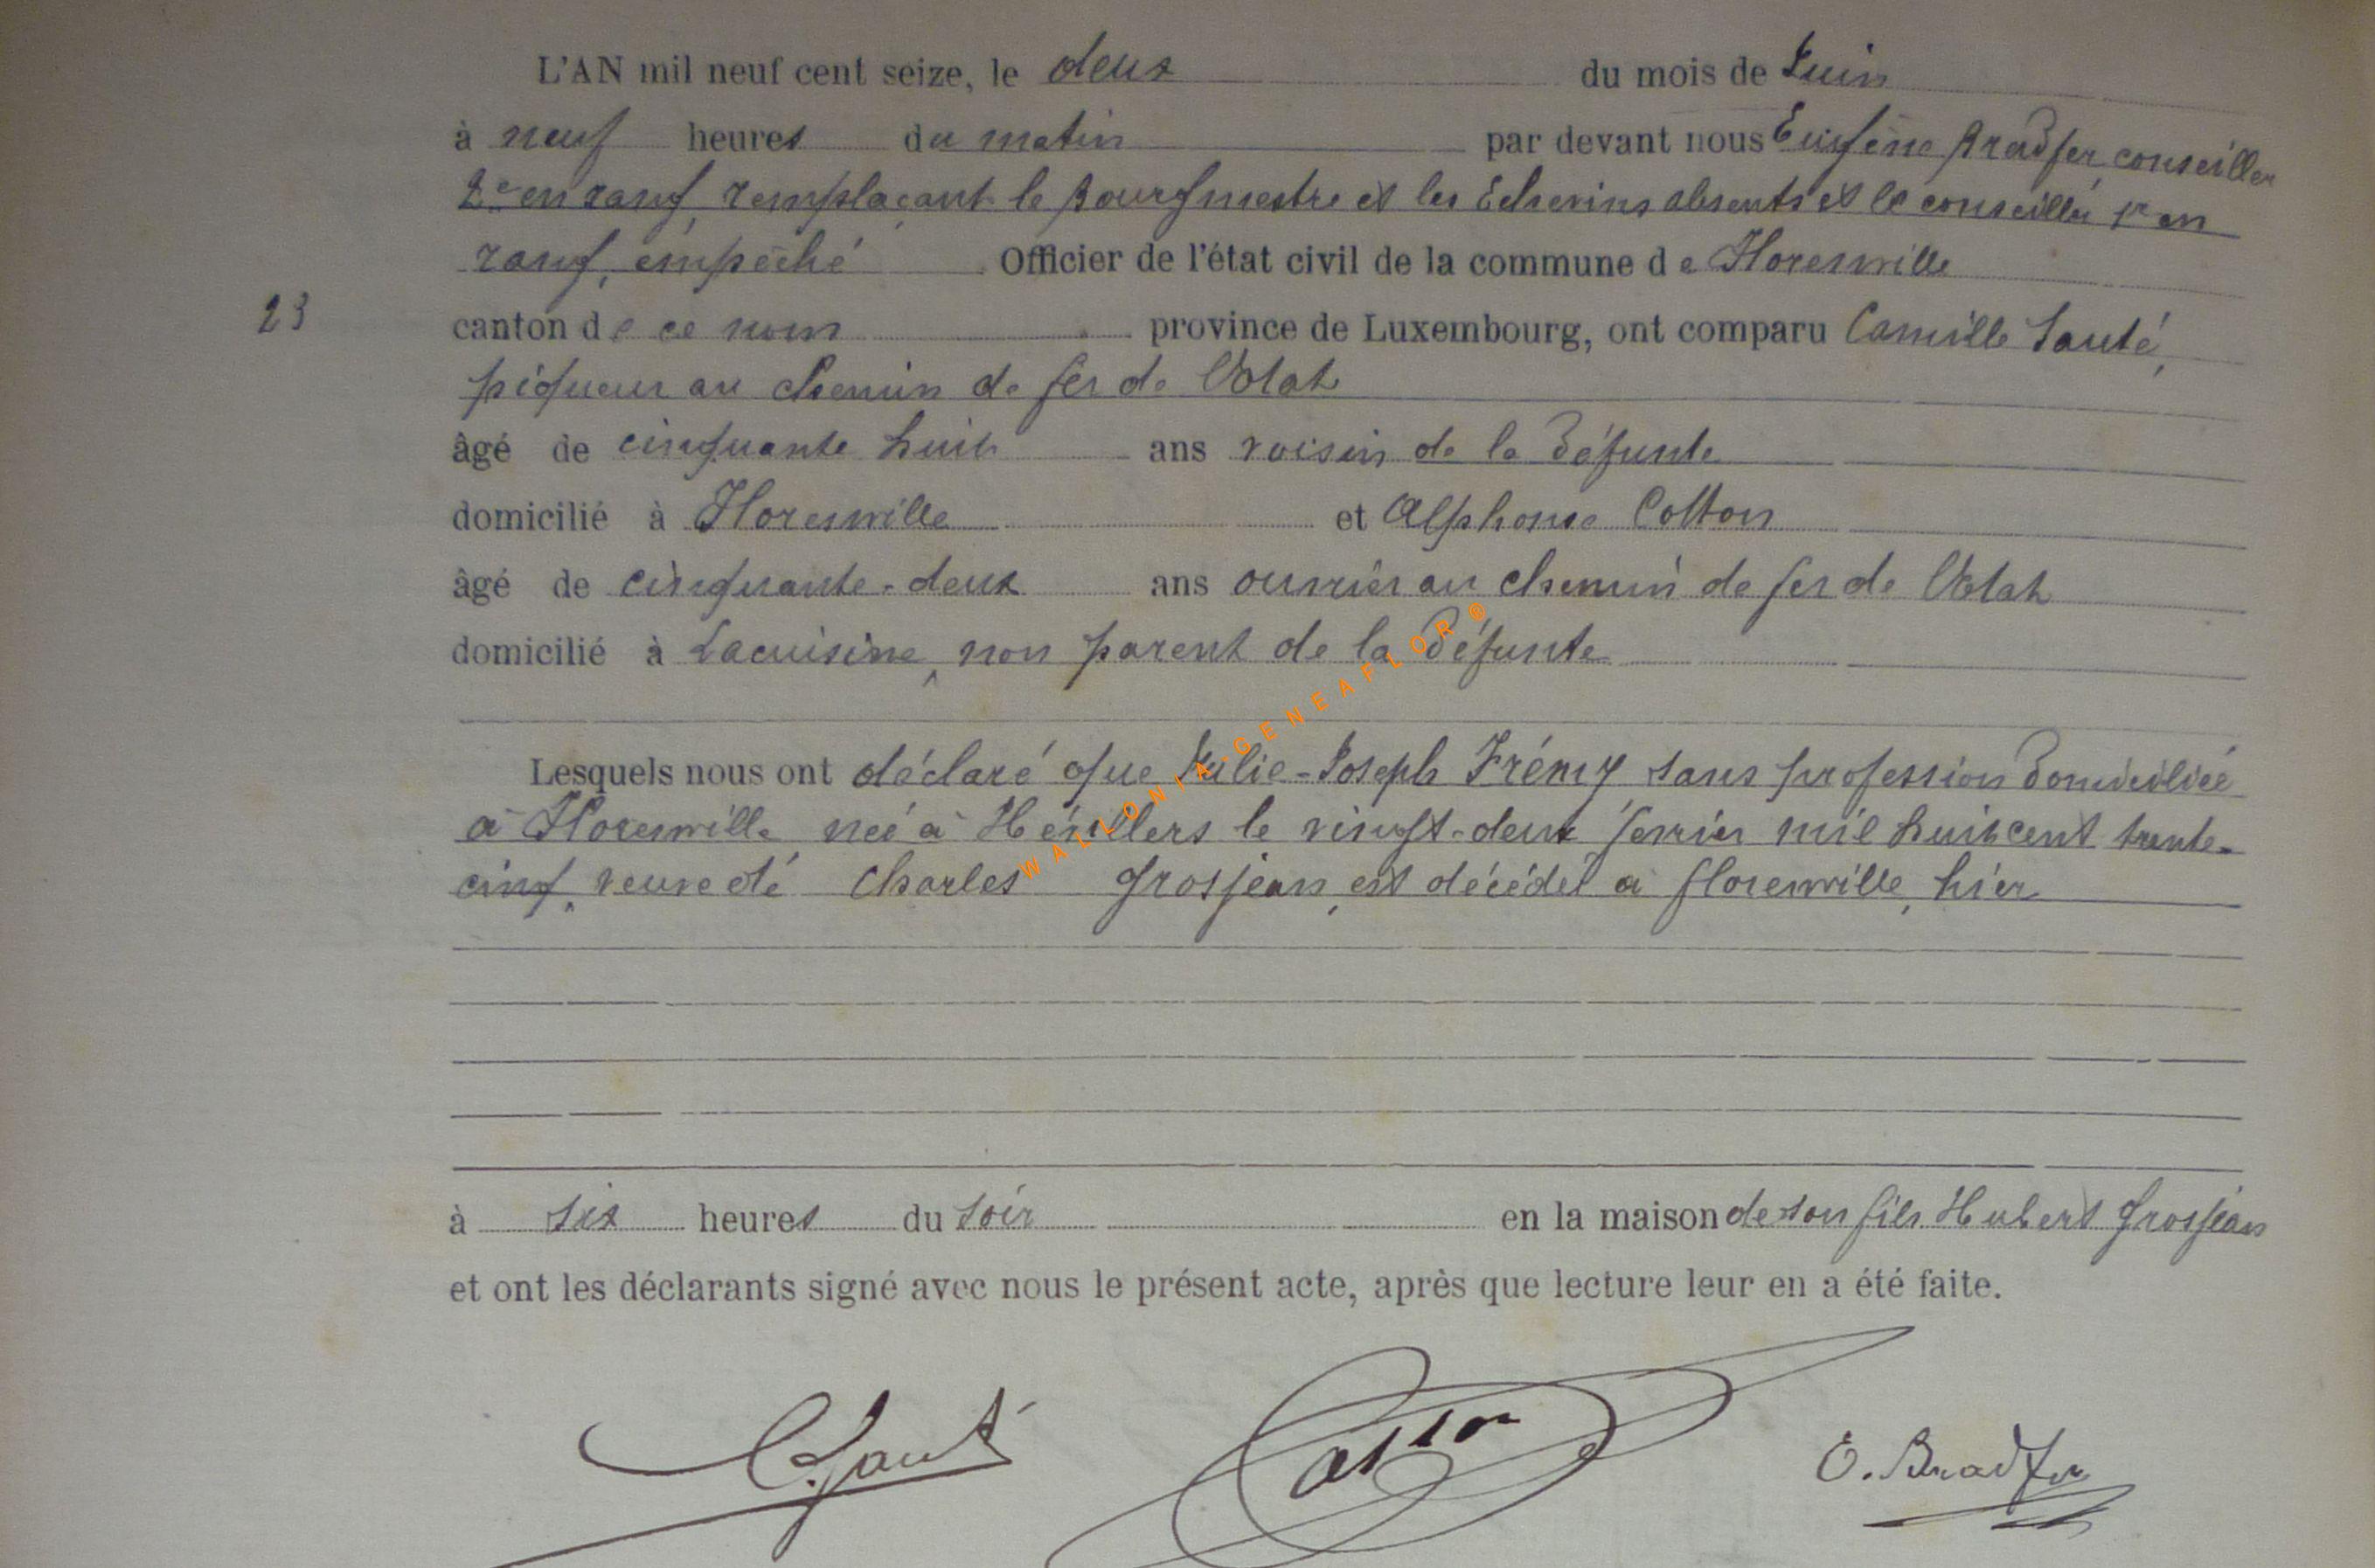 L'AN mil neuf cent seize, le deux du mois de Juin
à neuf heures du matin par devant nous Eugène Bradfer, conseiller
2e en rang, remplaçant le Bourgmestre et les Echevins absents et le conseiller 1er en
rang, empêché Officier de l'état civil de la commune de Florenville
23
canton de ce nom province de Luxembourg, ont comparu Camille Sauté,
piqueur au chemin de fer de l'Etat
âgé de cinquante huit ans voisin de la défunte
domicilié à Florenville et Alphonse Cotton
âgé de cinquante-deux ans ouvrier au chemin de fer de l'Etat
domicilié à Lacuisine, non parent de la défunte
Lesquels nous ont déclaré que Julie-Joseph Frémy sans profession domiciliée
à Florenville née à le vingt-deux février mil huit cent trente-
cinq, veuve de Charles Grosjean, est décédée à florenville, hier
à six heures du soir en la maison de son fils Hubert Grosjean
et ont les déclarants signé avec nous le présent acte, après que lecture leur en a été faite.
C. Sauté E. Bradfer
WALLONIA-GENEAFLOR®